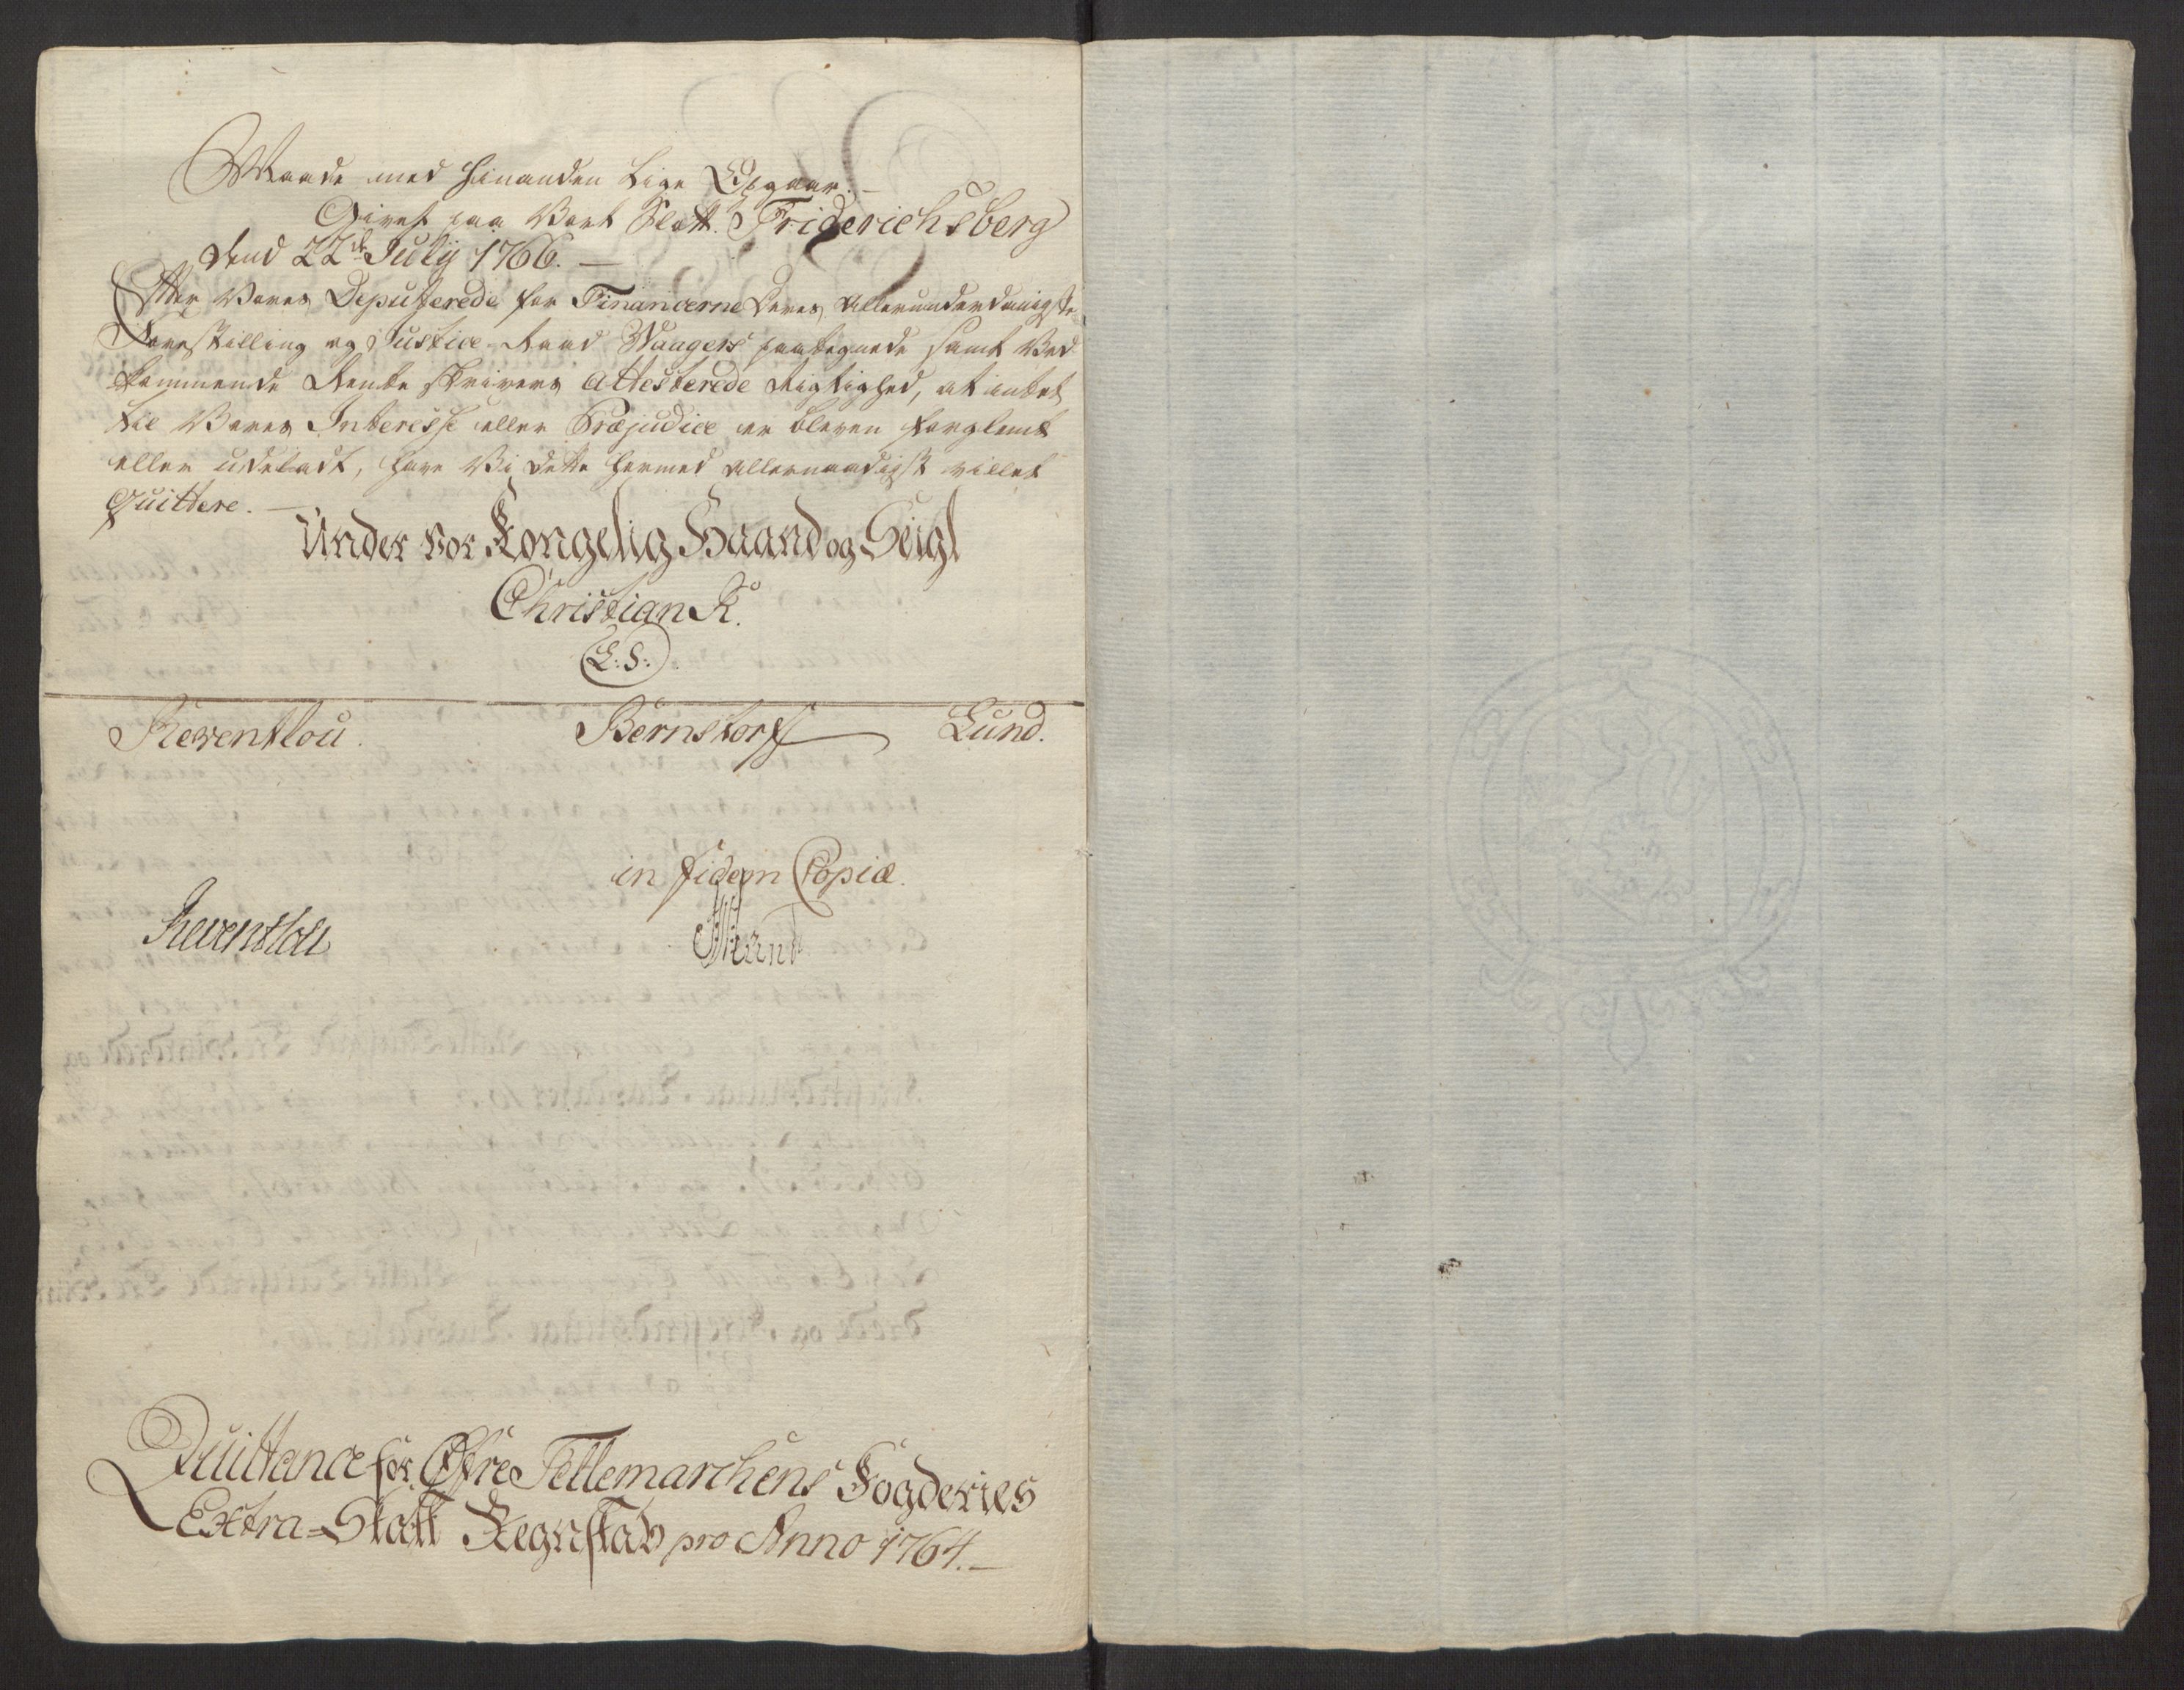 Maade med hinanden lige Opgaar.
Givet paa Vort Slott Friderichsberg
dend 22de July 1766.
Efter Vores Deputerede for Financerne deres allerunderdanigste
Forestilling og Justice-Raad Waagers paategnede samt Ved-
kommende Renteskrivers attesterede Rigtighed, at intet
til Vores Interesse eller Præjudice er bleven forglemt
eller udeladt, have Vi dette hermed allernaadigst villet
Quittere.
Under vor Kongelig Haand og Seigl
Christian R.
(L:S:)
Reventlou. Bernstorff Lund.
in fidem Copiæ.
Reventlou
Quittance for Øfre Tellemarchens Fogderies
Extra-Skatt Regnskab pro Anno 1764.